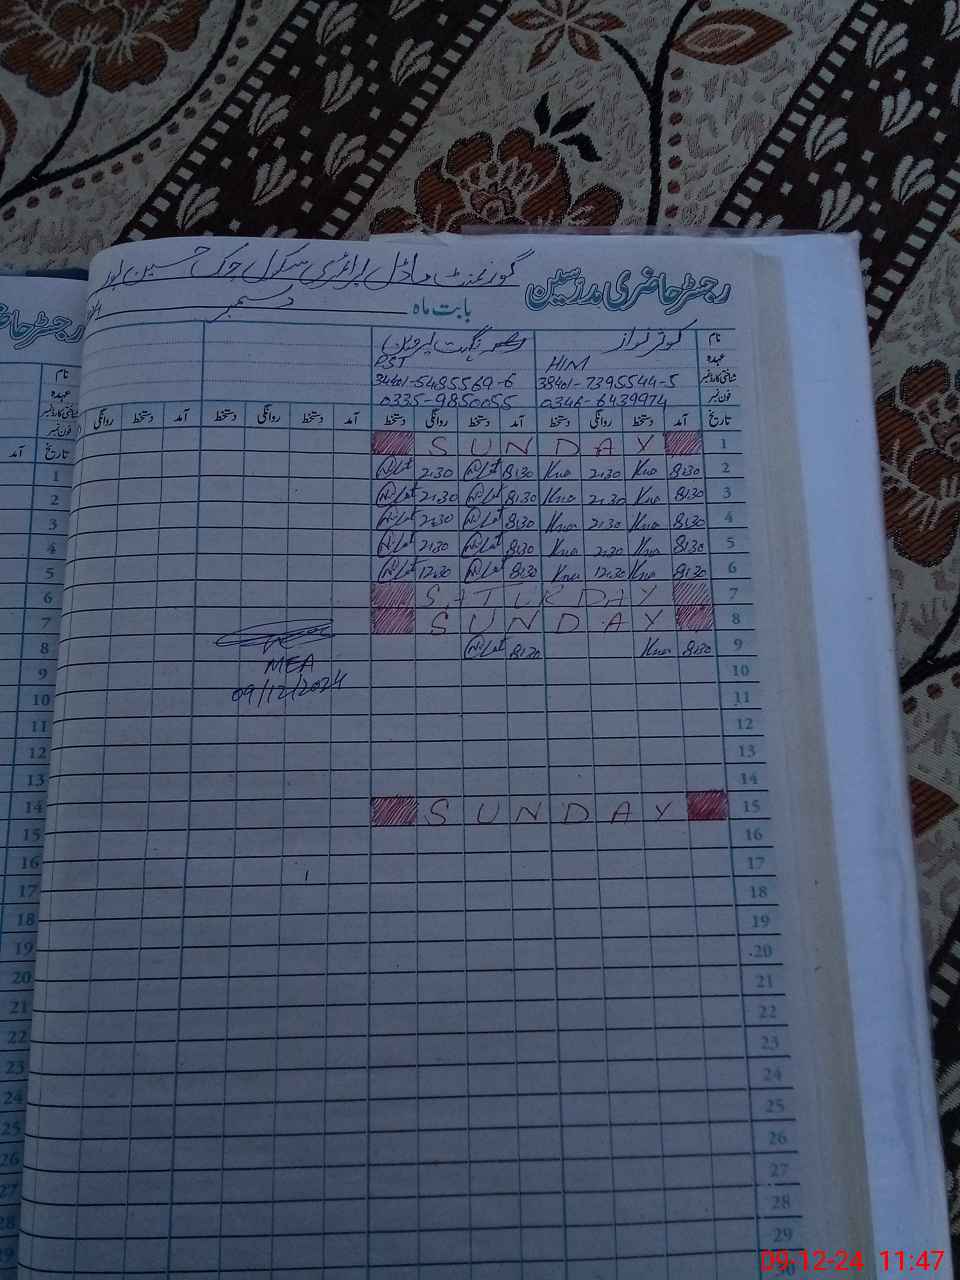 رجسٹر حاضری مدرسین
گورنمنٹ ماڈل پرائمری سکول چک حسین پور
بابت ماہ دسمبر
نام کوثر نواز نگہت پروین
عہدہ HM PST
شناختی کارڈ نمبر 38401-7395544-5 38401-5485569-6
فون نمبر 0346-6439974 0335-9850055
تاریخ آمد دستخط روانگی دستخط آمد دستخط روانگی دستخط آمد دستخط روانگی دستخط آمد دستخط روانگی
1 SUNDAY
2 8:30 2:30 8:30 2:30
3 8:30 2:30 8:30 2:30
4 8:30 2:30 8:30 2:30
5 8:30 2:30 8:30 2:30
6 8:30 12:30 8:30 12:30
7 SATURDAY
8 SUNDAY
9 8:30 8:30
MEA
09/12/2024
10
11
12
13
14
15 SUNDAY
16
17
18
19
20
21
22
23
24
25
26
27
28
29
30
رجسٹر حا
نام
عہدہ
شناختی کارڈ نمبر
فون نمبر
تاریخ آمد
1
2
3
4
5
6
7
8
9
10
11
12
13
14
15
16
17
18
19
20
21
22
23
24
25
26
27
28
29
09-12-24 11:47